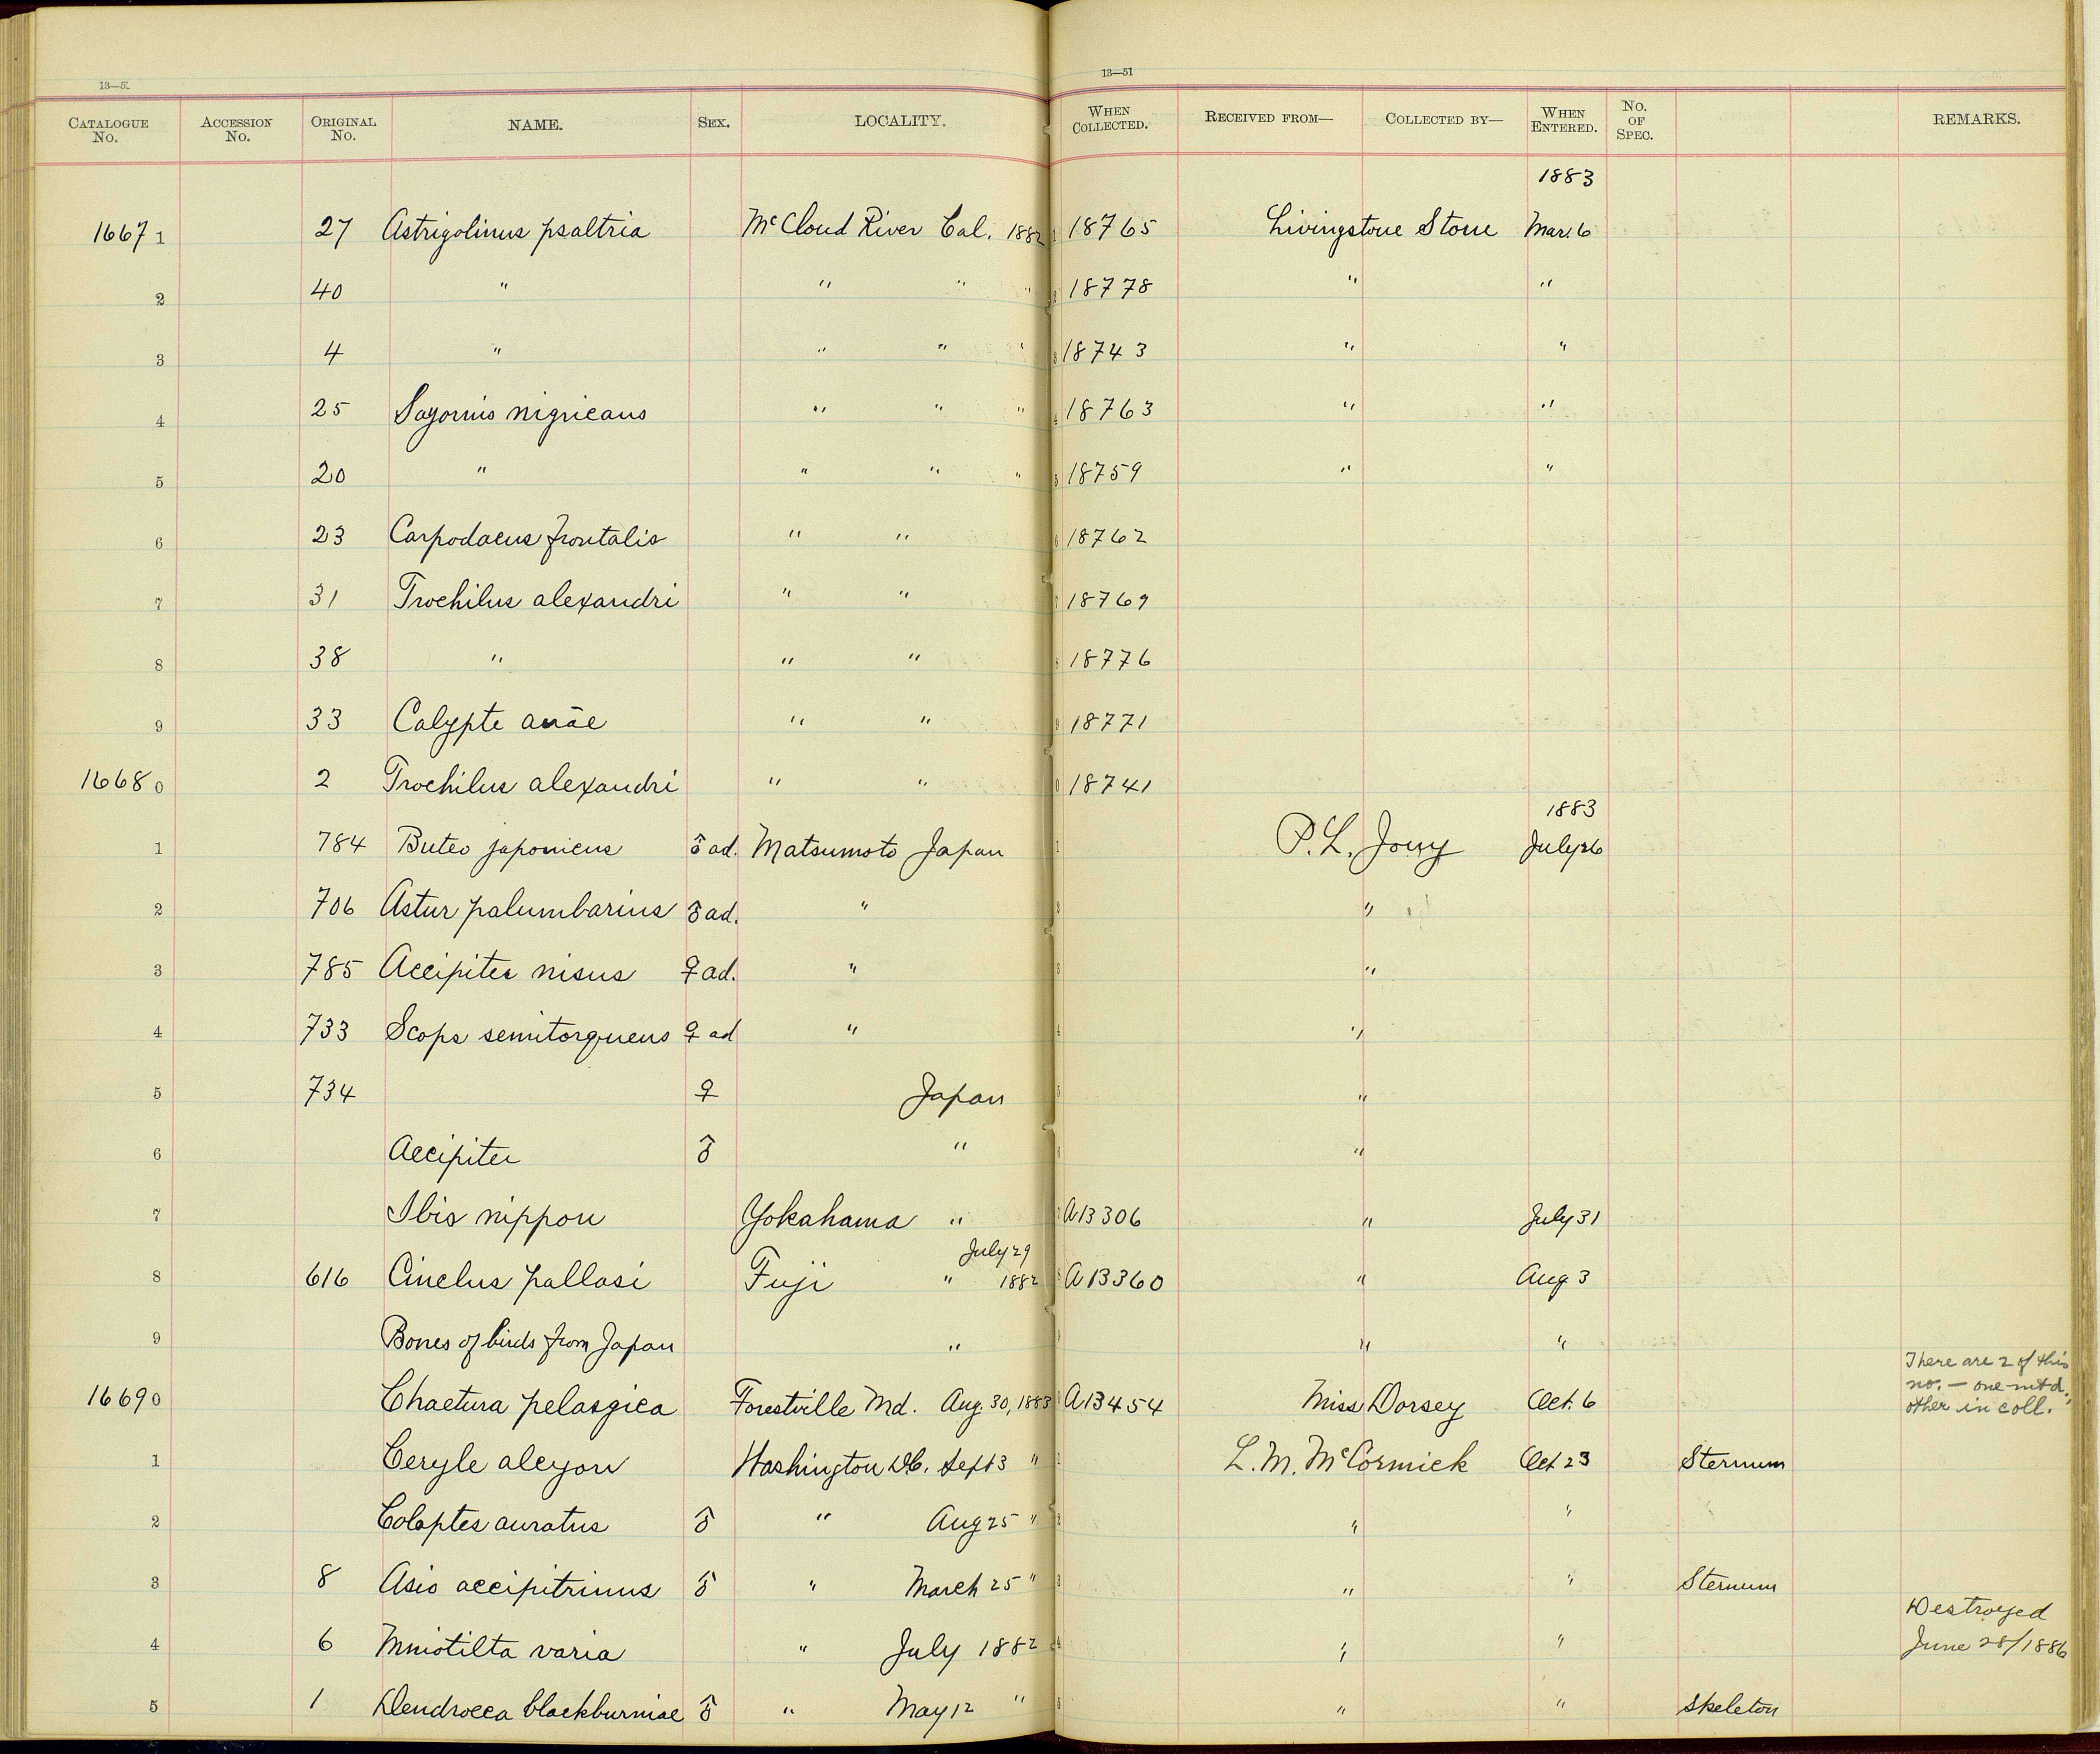 13—51 13—51
CATALOGUE No. ACCESSION No. ORIGINAL No. NAME. SEX. LOCALITY. WHEN COLLECTED. RECEIVED FROM— COLLECTED BY— WHEN ENTERED. No. OF SPEC. REMARKS.
1883
1667 1 27 Astrigolinus psaltria McCloud River Cal. 1882 18765 Livingstone Stone Mar. 6
2 40 " " " " 18778 " "
3 4 " " " " 18743 " "
4 25 Sayornis nigricans " " " 18763 " "
5 20 " " " " 18759 " "
6 23 Carpodacus frontalis " " 18762
7 31 Trochilus alexandri " " 18769
8 38 " " " 18776
9 33 Calypte anae " " 18771
1668 0 2 Trochilus alexandri " " 18741
1883
1 784 Buteo japonicus ♂ ad. Matsumoto Japan P. L. Jouy July 26
2 706 Astur palumbarius ♂ ad. " "
3 785 Accipiter nisus ♀ ad. " "
4 733 Scops semitorques ♀ ad " "
5 734 ♀ Japan "
6 Accipiter ♂ " "
7 Ibis nippon Yokahama " A13306 " July 31
July 29
8 616 Cinclus pallasi Fuji " 1882 A13360 " Aug 3
9 Bones of birds from Japan " " "
There are 2 of this
no. — one mtd.,
1669 0 Chaetura pelasgica Forestville Md. Aug. 30, 1883 A13454 Miss Dorsey Oct. 6 other in coll.
1 Ceryle alcyon Washington D.C. Sept 3 " L. M. McCormick Oct 23 Sternum
2 Colaptes auratus ♂ " Aug 25 " " "
3 8 Asio accipitrinus ♂ " March 25 " " " Sternum
Destroyed
4 6 Mniotilta varia " July 1882 " " June 28/1886
5 1 Dendroeca blackburniae ♂ " May 12 " " " Skeleton